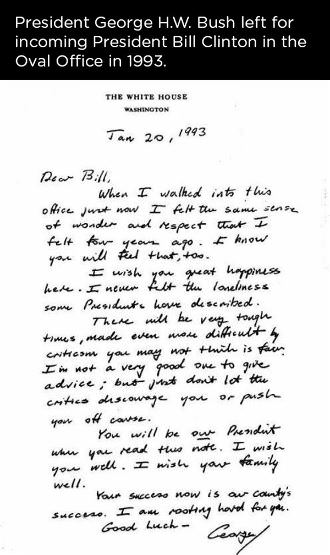 President George H.W. Bush left for
incoming President Bill Clinton in the
Oval Office in 1993.
THE WHITE HOUSE
WASHINGTON
Jan 20, 1993
Dear Bill,
When I walked into this
office just now I felt the same sense
of wonder and respect that I
felt four years ago. I know
you will feel that, too.
I wish you great happiness
here. I never felt the loneliness
some Presidents have described.
There will be very tough
times, made even more difficult by
criticism you may not think is fair.
I'm not a very good one to give
advice; but just don't let the
critics discourage you or push
you off course.
You will be our President
when you read this note. I wish
you well. I wish your family
well.
Your success now is our country's
success. I am rooting hard for you.
Good Luck -
George